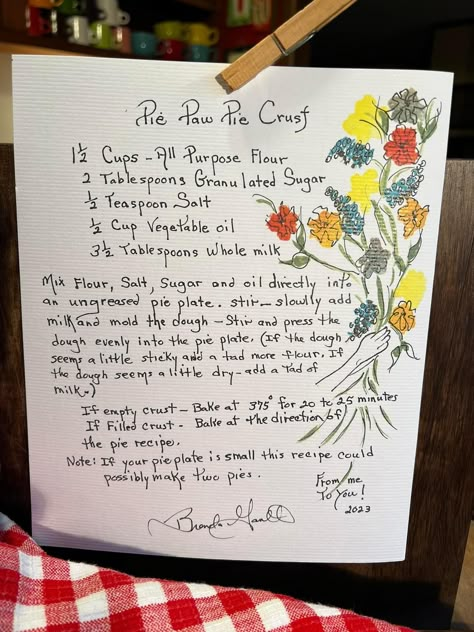 Pie Paw Pie Crust
1½ Cups - All Purpose Flour
2 Tablespoons Granulated Sugar
½ Teaspoon Salt
½ Cup Vegetable oil
3½ Tablespoons Whole milk
Mix Flour, Salt, Sugar and oil directly into
an ungreased pie plate. stir - slowly add
milk and mold the dough - Stir and press the
dough evenly into the pie plate. (If the dough
seems a little sticky and a tad more flour. If
the dough seems a little dry - add a tad of
milk.)
If empty crust - Bake at 375° for 20 to 25 minutes
If Filled crust - Bake at the direction of
the pie recipe.
Note: If your pie plate is small this recipe could
possibly make two pies.
From me
To You!
2023
Brenda Gantt